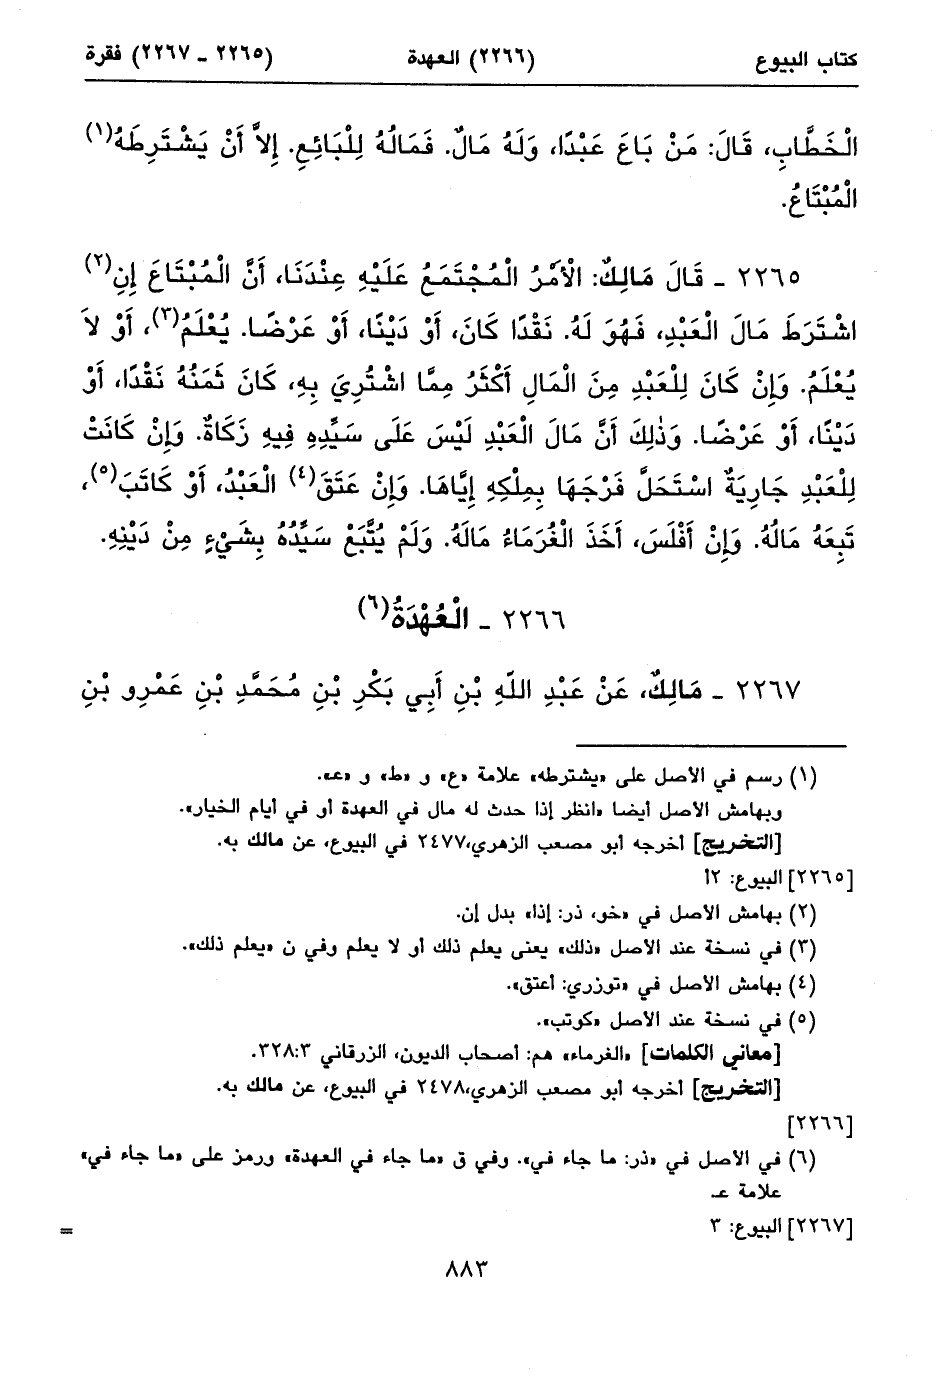 كتاب البيوع (٢٢٦٦) العهدة (٢٢٦٥ ـ ٢٢٦٧) فقرة
الْخَطَّابِ، قَالَ: مَنْ بَاعَ عَبْدًا، وَلَهُ مَالٌ. فَمَالُهُ لِلْبَائِعِ. إِلاَّ أَنْ يَشْتَرِطَهُ(١)
الْمُبْتَاعُ.
٢٢٦٥ ـ قَالَ مَالِكٌ: الْأَمْرُ الْمُجْتَمَعُ عَلَيْهِ عِنْدَنَا، أَنَّ الْمُبْتَاعَ إِنِ(٢)
اشْتَرَطَ مَالَ الْعَبْدِ، فَهُوَ لَهُ. نَقْدًا كَانَ، أَوْ دَيْنًا، أَوْ عَرْضًا. يُعْلَمُ(٣)، أَوْ لاَ
يُعْلَمُ. وَإِنْ كَانَ لِلْعَبْدِ مِنَ الْمَالِ أَكْثَرُ مِمَّا اشْتُرِيَ بِهِ، كَانَ ثَمَنُهُ نَقْدًا، أَوْ
دَيْنًا، أَوْ عَرْضًا. وَذٰلِكَ أَنَّ مَالَ الْعَبْدِ لَيْسَ عَلَى سَيِّدِهِ فِيهِ زَكَاةٌ. وَإِنْ كَانَتْ
لِلْعَبْدِ جَارِيَةٌ اسْتَحَلَّ فَرْجَهَا بِمِلْكِهِ إِيَّاهَا. وَإِنْ عَتَقَ(٤) الْعَبْدُ، أَوْ كَاتَبَ(٥)،
تَبِعَهُ مَالُهُ. وَإِنْ أَفْلَسَ، أَخَذَ الْغُرَمَاءُ مَالَهُ. وَلَمْ يُتَّبَعْ سَيِّدُهُ بِشَيْءٍ مِنْ دَيْنِهِ.
٢٢٦٦ ـ الْعُهْدَةُ(٦)
٢٢٦٧ ـ مَالِكٌ، عَنْ عَبْدِ اللّهِ بْنِ أَبِي بَكْرِ بْنِ مُحَمَّدِ بْنِ عَمْرِو بْنِ
(١) رسم في الأصل على «يشترطه» علامة «ع» و «ط» و «عـ».
وبهامش الأصل أيضا «انظر إذا حدث له مال في العهدة أو في أيام الخيار».
[التخريج] أخرجه أبو مصعب الزهري،٢٤٧٧ في البيوع، عن مالك به.
[٢٢٦٥] البيوع: ٢أ
(٢) بهامش الأصل في «خو، ذر: إذا» بدل إن.
(٣) في نسخة عند الأصل «ذلك» يعنى يعلم ذلك أو لا يعلم وفي ن «يعلم ذلك».
(٤) بهامش الأصل في «توزري: أعتق».
(٥) في نسخة عند الأصل «كوتب».
[معاني الكلمات] «الغرماء» هم: أصحاب الديون، الزرقاني ٣:٣٢٨.
[التخريج] أخرجه أبو مصعب الزهري،٢٤٧٨ في البيوع، عن مالك به.
[٢٢٦٦]
(٦) في الأصل في «ذر: ما جاء في». وفي ق «ما جاء في العهدة» ورمز على «ما جاء في»
علامة عـ
[٢٢٦٧] البيوع: ٣
=
٨٨٣